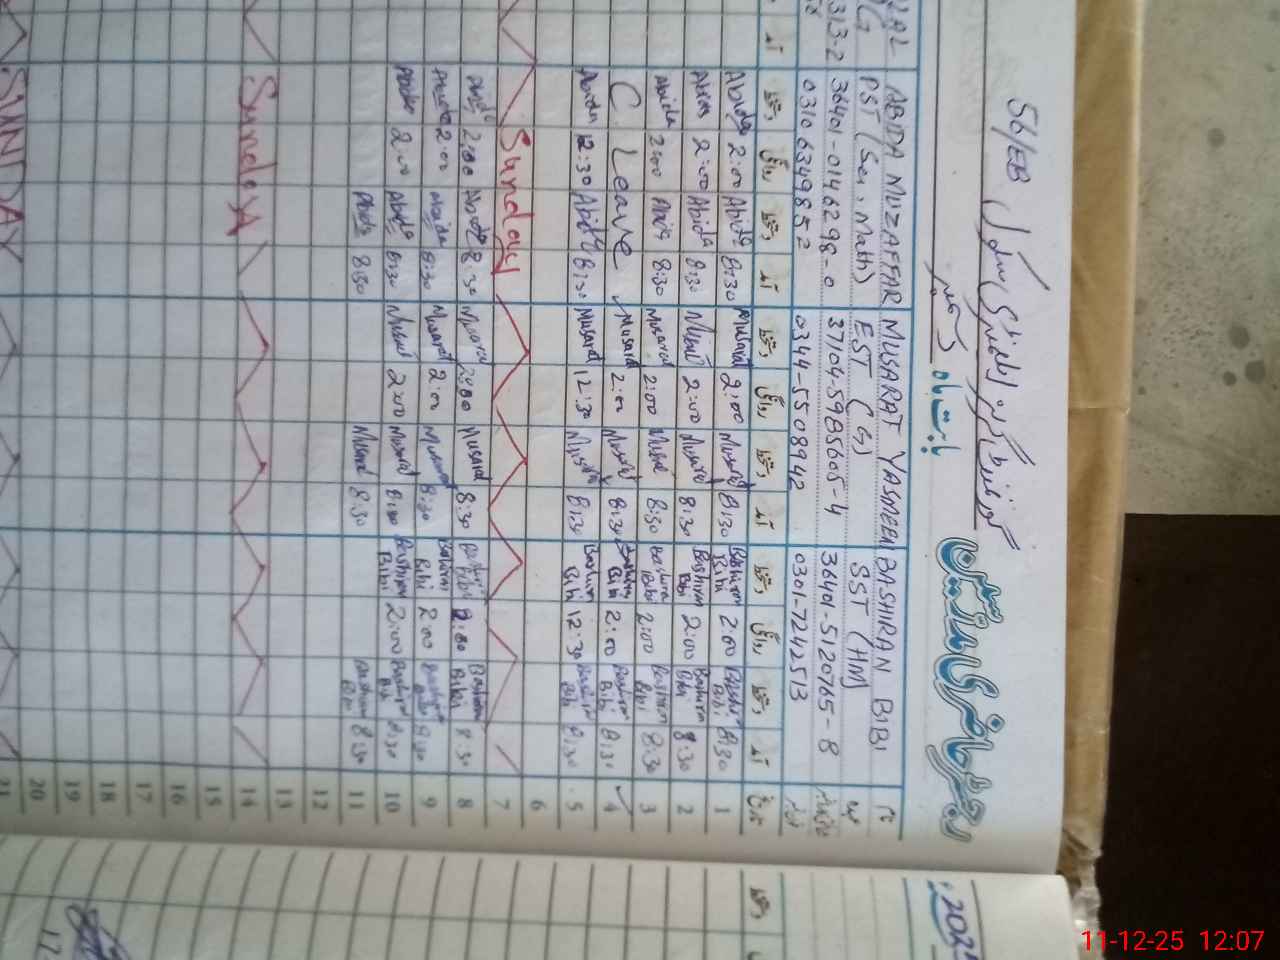 56/EB
رجسٹر حاضری مدرسین
بابت ماہ
BASHIRAN BIBI MUSARAT YASMEEN ABIDA MUZAFFAR
SST (HM) EST (G) PST (Sci, Math)
36401-5120765-8 37104-5985605-4 36401-0146298-0
0301-7242513 0344-5508942 0310 6349852
تاریخ آمد دستخط روانگی دستخط آمد دستخط روانگی دستخط آمد دستخط روانگی دستخط آمد
1 8:30 Bashiran Bibi 2:00 Bashiran Bibi 8:30 Musarat 2:00 Musarat 8:30 Abida 2:00 Abida
2 8:30 Bashiran Bibi 2:00 Bashiran Bibi 8:30 Musarat 2:00 Musarat 8:30 Abida 2:00 Abida
3 8:30 Bashiran Bibi 2:00 Bashiran Bibi 8:30 Musarat 2:00 Musarat 8:30 Abida 2:00 Abida
4 8:30 Bashiran Bibi 2:00 Bashiran Bibi 8:30 Musarat 2:00 Musarat C. Leave
5 8:30 Bashiran Bibi 12:30 Bashiran Bibi 8:30 Musarat 12:30 Musarat 8:30 Abida 12:30 Abida
6
7 Sunday
8 8:30 Bashiran Bibi 2:00 Bashiran Bibi 8:30 Musarat 2:00 Musarat 8:30 Abida 2:00 Abida
9 8:30 Bashiran Bibi 2:00 Bashiran Bibi 8:30 Musarat 2:00 Musarat 8:30 Abida 2:00 Abida
10 8:30 Bashiran Bibi 2:00 Bashiran Bibi 8:30 Musarat 2:00 Musarat 8:30 Abida 2:00 Abida
11 8:30 Bashiran Bibi 8:30 Musarat 8:30 Abida
12
13
14 Sunday
15
16
17
18
19
20
21 SUNDAY
11-12-25 12:07